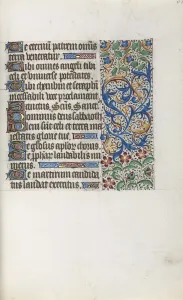 Te eternum patrem omnis
terra veneratur.
Tibi omnes angeli tibi
celi et universe potestates.
Tibi cherubin et seraphin
incessabili voce proclamant.
Sanctus, Scūs, Sanct
Dominus deus sabaoth
Pleni sūt celi et terra ma
iestatis glorie tue.
Te gl'osus aplor, chorus.
Te, pphār, laudabilis nu
merus.
Te martirum candida
tus laudat exercitus.